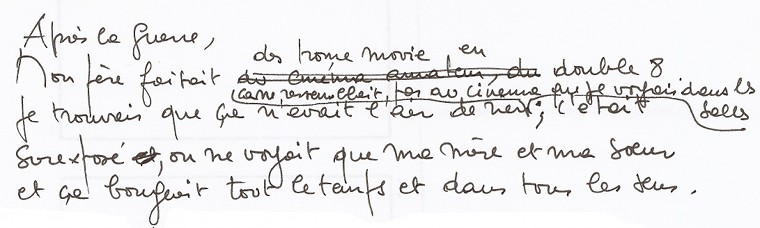 Après la guerre,
des home movie en
Mon père faisait du cinéma amateur, du double 8
(ça ne ressemblait pas au cinéma que je voyais dans les
Je trouvais que ça n'avait l'air de rien; c'était salles
surexposé et, on ne voyait que ma mère et ma sœur
et ça bougeait tout le temps et dans tous les sens.